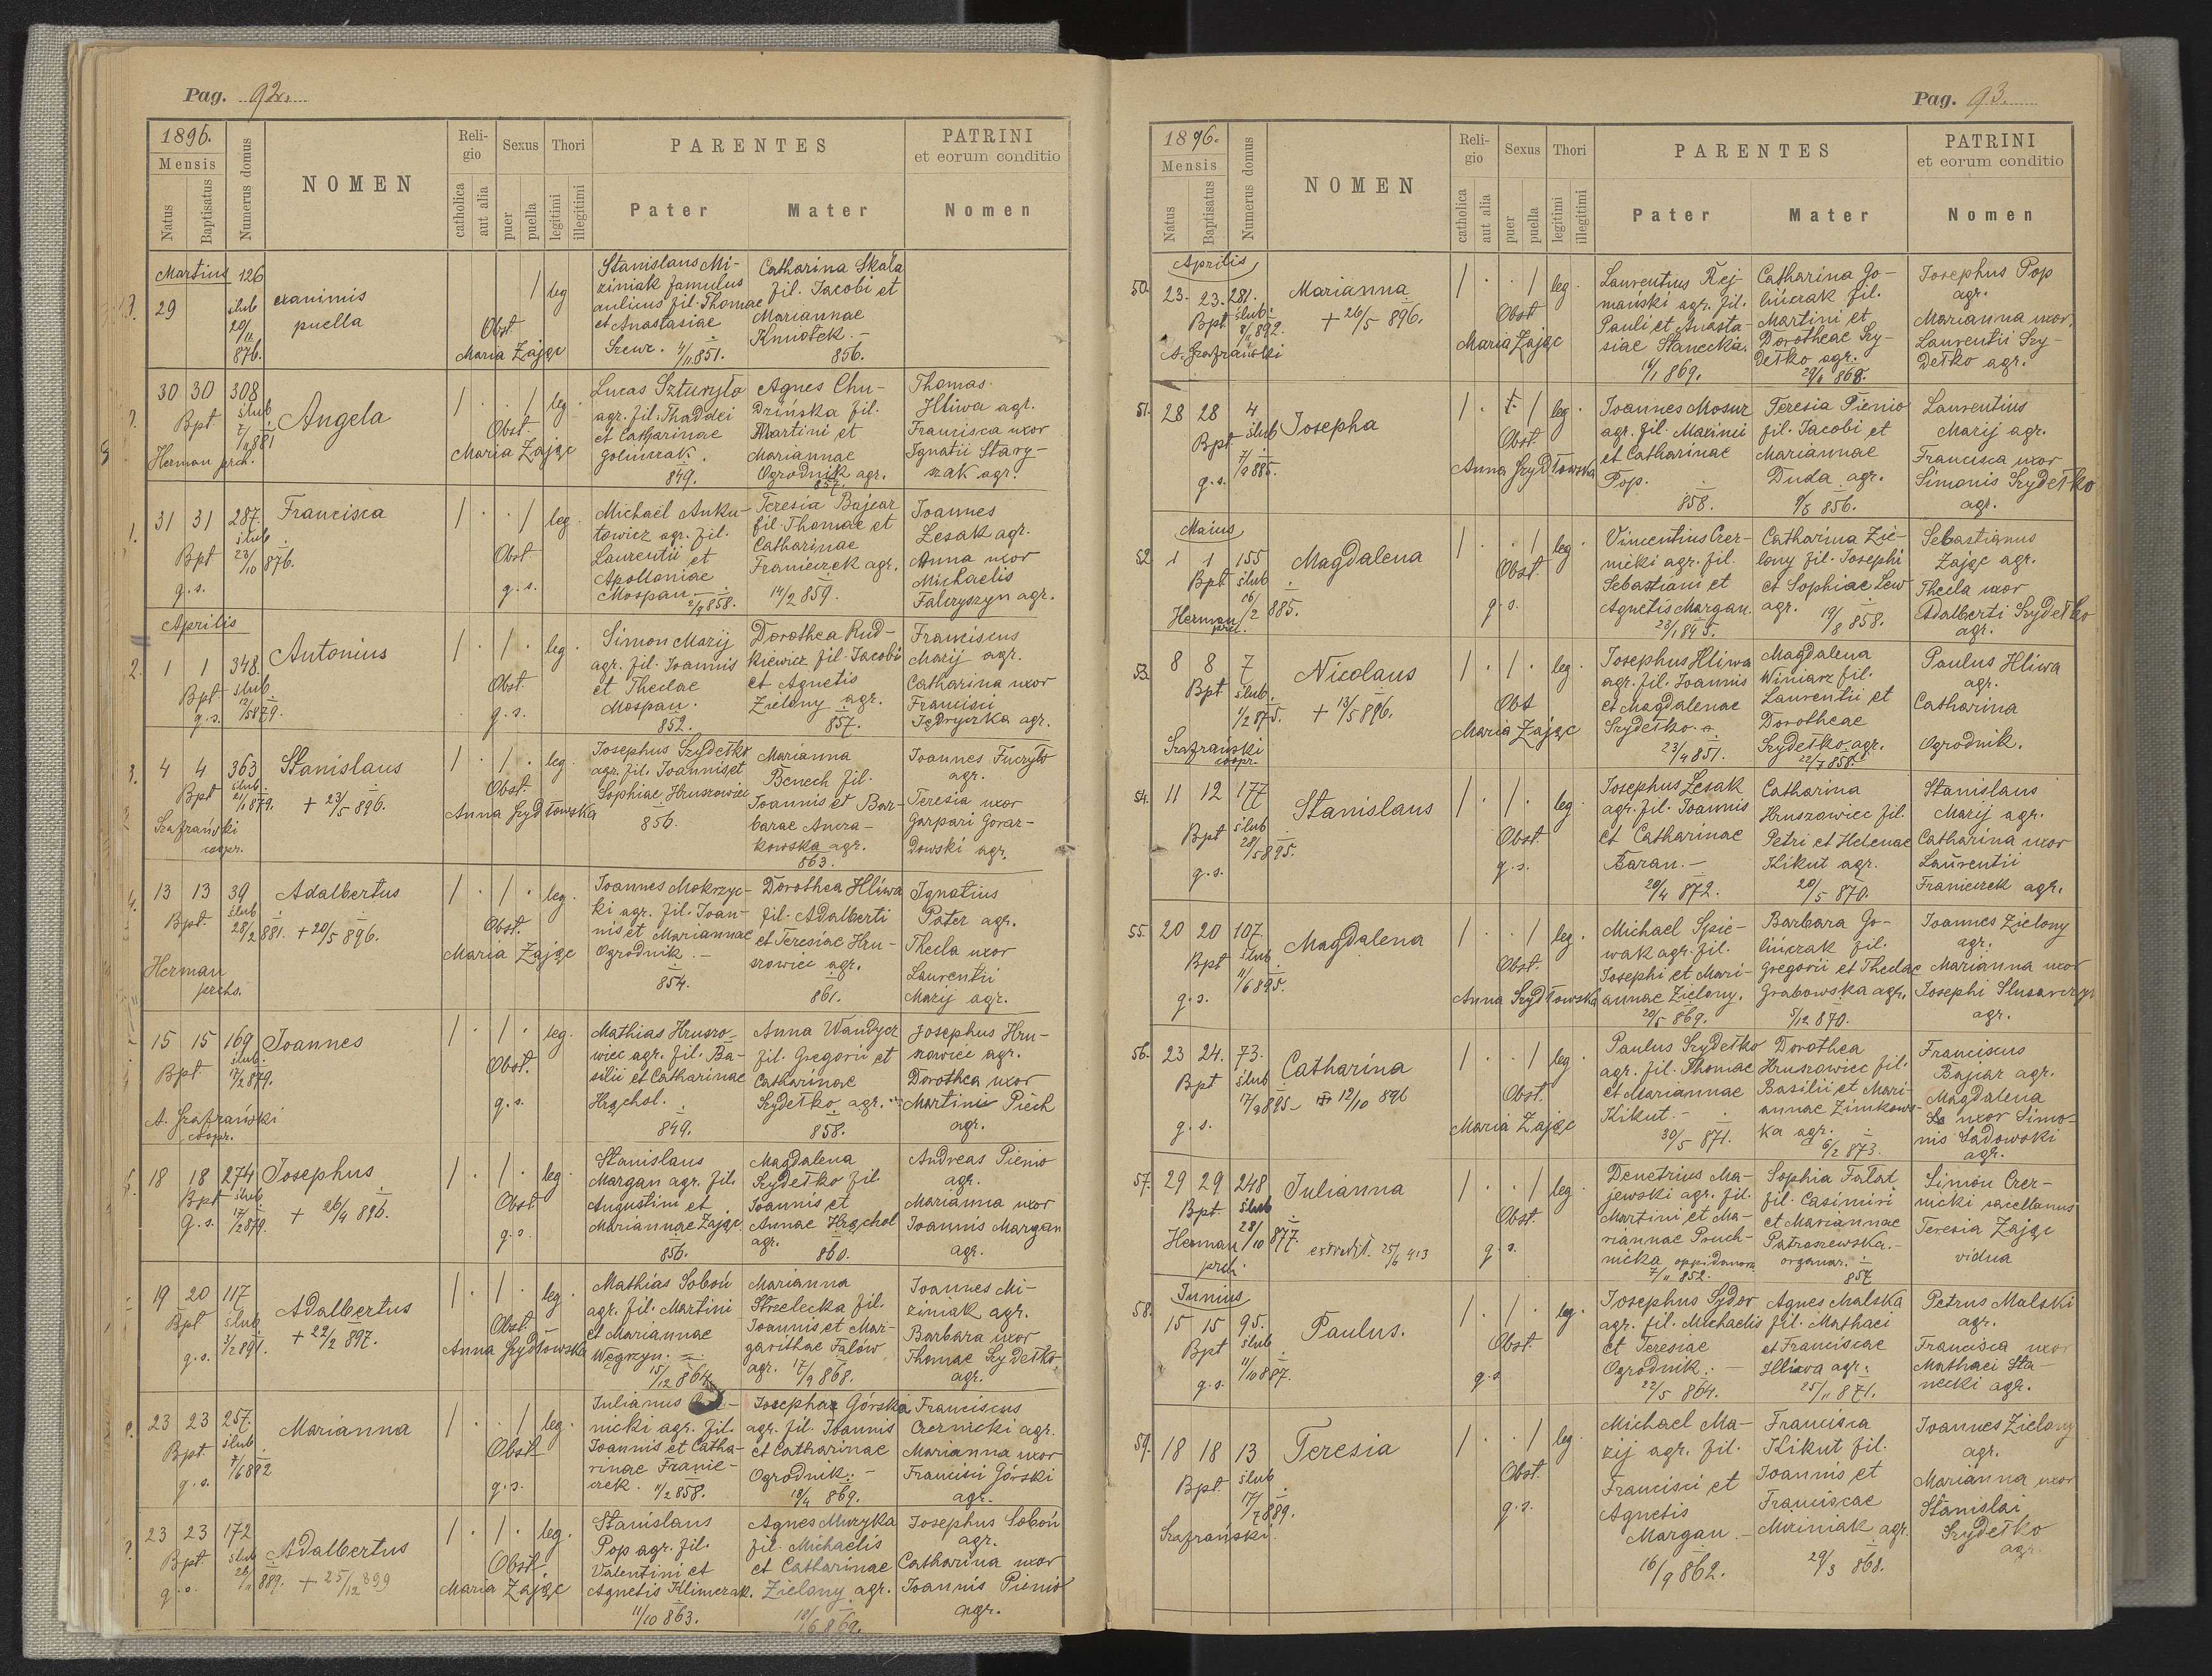 Pag. 92.
1896.
Mensis
Natus
Baptisatus
Numerus domus
NOMEN
Religio
catholica
aut alia
Sexus
puer
puella
Thori
legitimi
illegitimi
PARENTES
Pater
Mater
PATRINI
et eorum conditio
Nomen
Martius 126
29
ślub
20/11
876.
exanimis
puella
/ leg
Obst
Maria Zając
Stanislaus Mi-
ziniak famulus
aulicus fil. Thomae
et Anastasiae
Szewc. 4/11 851.
Catharina Skała
fil. Jacobi et
Mariannae
856.
30 30 308
Bpt ślub
7/11 881
Herman prch.
Angela
/ . . / leg.
Obst.
Maria Zając
Lucas Szturyło
agr. fil. Thaddei
et Catharinae
Golińczak.
849.
Agnes Chu-
dzińska fil.
Martini et
Mariannae
Ogrodnik agr.
857.
Thomas
Hliwa agr.
Francisca uxor
Ignatii Stary-
szak agr.
31 31 287.
ślub
Bpt 23/10 876.
g. s.
Francisca
/ . . / leg.
Obst
g. s.
Michaël Anku-
towicz agr. fil.
Laurentii et
Apolloniae
Mospan. 2/9 858.
Teresia Bajcar
fil. Thomae et
Catharinae
Franiczek agr.
14/2 859.
Joannes
Lesak agr.
Anna uxor
Michaelis
Falryszyn agr.
Aprilis
2. 1 1 348.
Bpt ślub
g. s. 12/5 879.
Antonius
/ . / . leg.
Obst.
g. s.
Simon Marij
agr. fil. Joannis
et Theclae
Mospan.
852.
Dorothea Rud-
kiewicz fil. Jacobi
et Agnetis
Zielony agr.
857.
Franciscus
Marij agr.
Catharina uxor
Francisci
Jędryczka agr.
3. 4 4 363
Bpt ślub
1879.
Szafrański
coopr.
Stanislaus
+ 23/5 896.
/ . / . leg.
Obst.
Anna Szydłowska
Josephus Szydełko
agr. fil. Joannis et
Sophiae Hruszowiec
856.
Marianna
Benech fil.
Joannis et Bar-
barae Ancra-
kowska agr.
863.
Joannes Fucryło
agr.
Teresia uxor
Gaspari Goraz-
dowski agr.
4. 13 13 39
Bpt. ślub
28/2 881.
Herman
prchs.
Adalbertus
+ 20/5 896.
/ . / . leg.
Obst.
Maria Zając
Joannes Mokrzyc-
ki agr. fil. Joan-
nis et Mariannae
Ogrodnik. -
854.
Dorothea Hliwa
fil. Adalberti
et Teresiae Hru-
szowiec agr.
861.
Ignatius
Pater agr.
Thecla uxor
Laurentii
Marij agr.
15 15 169
ślub
Bpt. 17/2 879.
A. Szafrański
coopr.
Joannes
/ . / . leg.
Obst.
g. s.
Mathias Hruszo-
wiec agr. fil. Ba-
silii et Catharinae
Hrąchol.
849.
Anna Wandycz
fil. Gregorii et
Catharinae
Szydełko agr.
858.
Josephus Hru-
szowiec agr.
Dorothea uxor
Martini Piech
agr.
18 18 274
Bpt ślub
g. s. 17/2 879.
Josephus
+ 26/4 896.
/ . / . leg.
Obst
g. s.
Stanislaus
Margan agr. fil.
Augustini et
Mariannae Zając
856.
Magdalena
Szydełko fil.
Joannis et
Annae Krąchol
agr. 860.
Andreas Pienio
agr.
Marianna uxor
Joannis Margan
agr.
19 20 117
Bpt ślub
g. s. 3/2 891.
Adalbertus
+ 22/2 897.
/ . / . leg.
Obst.
Anna Szydłowska
Mathias Soboń
agr. fil. Martini
et Mariannae
Węgrzyn.
15/12 864.
Marianna
Strzelecka fil.
Joannis et Mar-
garithae Falów
agr. 17/9 868.
Joannes Mi-
ziniak agr.
Barbara uxor
Thomae Szydełko
agr.
23 23 257.
Bpt ślub
g. s. 7/6 892
Marianna
/ . . / leg.
Obst
g. s.
Julianus
nicki agr. fil.
Joannis et Catha-
rinae Franie-
czek. 11/2 858.
Josepha Górska
agr. fil. Joannis
et Catharinae
Ogrodnik. -
18/4 869.
Franciscus
Czernicki agr.
Marianna uxor
Francisci Górski
agr.
23 23 172
Bpt. ślub
g. s. 26/11 889.
Adalbertus
+ 25/12 899
/ . / . leg.
Obst.
Maria Zając
Stanislaus
Pop agr. fil.
Valentini et
Agnetis Klimczak.
11/10 863.
Agnes Muzyka
fil. Michaëlis
et Catharinae
Zielony agr.
18/6 869.
Josephus Soboń
agr.
Catharina uxor
Joannis Pienio
agr.
Pag. 93.
1896.
Mensis
Natus
Baptisatus
Numerus domus
NOMEN
Religio
catholica
aut alia
Sexus
puer
puella
Thori
legitimi
illegitimi
PARENTES
Pater
Mater
PATRINI
et eorum conditio
Nomen
Aprilis
50. 23. 23. 281.
Bpt. ślub
8/1 892.
A. Szafrański
Marianna
+ 26/5 896.
/ . . / leg.
Obst
Maria Zając
Laurentius Rej-
mański agr. fil.
Pauli et Anasta-
siae Stanecka.
10/1 869.
Catharina Go-
lińczak fil.
Martini et
Dorotheae Szy-
dełko agr.
29/1 868.
Josephus Pop
agr.
Marianna uxor
Laurentii Szy-
dełko agr.
51. 28 28 4
Bpt ślub
g. s. 7/9 885.
Josepha
/ . . / leg.
Obst.
Anna Szydłowska
Joannes Mosur
agr. fil. Maximi
et Catharinae
Pop.
858.
Teresia Pienio
fil. Jacobi et
Mariannae
Duda agr.
9/3 856.
Laurentius
Marij agr.
Francisca uxor
Simonis Szydełko
agr.
Maius
52. 1 1 155
Bpt ślub
16/2 885.
Herman
prch.
Magdalena
/ . . / leg.
Obst.
g. s.
Vincentius Czer-
nicki agr. fil.
Sebastiani et
Agnetis Margan.
23/1 845.
Catharina Zie-
lony fil. Josephi
et Sophiae Lew
agr. 19/8 858.
Sebastianus
Zając agr.
Thecla uxor
Adalberti Szydełko
agr.
53. 8 8 7
Bpt ślub
1/2 875.
Szafrański
coopr.
Nicolaus
+ 13/5 896.
/ . / . leg.
Obst
Maria Zając
Josephus Hliwa
agr. fil. Joannis
et Magdalenae
Szydełko.
23/4 851.
Magdalena
Winiarz fil.
Laurentii et
Dorotheae
Szydełko agr.
22/7 858.
Paulus Hliwa
agr.
Catharina
Ogrodnik.
54. 11 12 177
Bpt ślub
28/5 895.
g. s.
Stanislaus
/ . / . leg.
Obst.
g. s.
Josephus Lesak
agr. fil. Joannis
et Catharinae
Baran. -
20/4 872.
Catharina
Hruszowiec fil.
Petri et Helenae
Kikut agr.
20/5 870.
Stanislaus
Marij agr.
Catharina uxor
Laurentii
Franiczek agr.
55. 20 20 107.
Bpt ślub
11/6 895.
g. s.
Magdalena
/ . . / leg.
Obst.
Anna Szydłowska
Michael Spie-
wak agr. fil.
Josephi et Mari-
annae Zielony.
20/5 869.
Barbara Go-
lińczak fil.
Gregorii et Theclae
Grabowska agr.
5/12 870.
Joannes Zielony
agr.
Marianna uxor
Josephi Slusarczyk
agr.
56. 23 24. 73.
Bpt ślub
17/9 895
g. s.
Catharina
+ 12/10 896
/ . . / leg.
Obst.
Maria Zając
Paulus Szydełko
agr. fil. Thomae
et Mariannae
Kikut. -
30/5 871.
Dorothea
Hruszowiec fil.
Basilii et Mari-
annae Zimkows-
ka agr.
6/2 873.
Franciscus
Bajcar agr.
Magdalena
uxor Simo-
nis Sadowski
agr.
57. 29 29 248
Bpt ślub
28/10 877.
Herman
prch.
Julianna
extradit. 25/6 913
/ . . / leg.
Obst.
g. s.
Demetrius Ma-
jewski agr. fil.
Martini et Ma-
riannae Pruch-
nicka oppidanorum
7/11 852.
Sophia Fałat
fil. Casimiri
et Mariannae
Patroszewska. -
organar.
857
Simon Czer-
nicki sacellanus
Teresia Zając
vidua
Junius
58. 15 15 95.
Bpt ślub
g. s. 11/10 887.
Paulus.
/ . / . leg.
Obst.
g. s
Josephus Sydor
agr. fil. Michaelis
et Teresiae
Ogrodnik. -
22/5 864.
Agnes Malska
fil. Mathaei
et Franciscae
Hliwa agr.
25/11 871.
Petrus Malski
agr.
Francisca uxor
Mathaei Sta-
necki agr.
59. 18 18 13
Bpt. ślub
17/7 889.
Szafrański
Teresia
/ . . / leg.
Obst.
g. s.
Michael Ma-
zij agr. fil.
Francisci et
Agnetis
Margan. -
16/9 862.
Francisca
Kikut fil.
Joannis et
Franciscae
Miziniak agr.
29/3 868.
Joannes Zielony
agr.
Marianna uxor
Stanislai
Szydełko
agr.